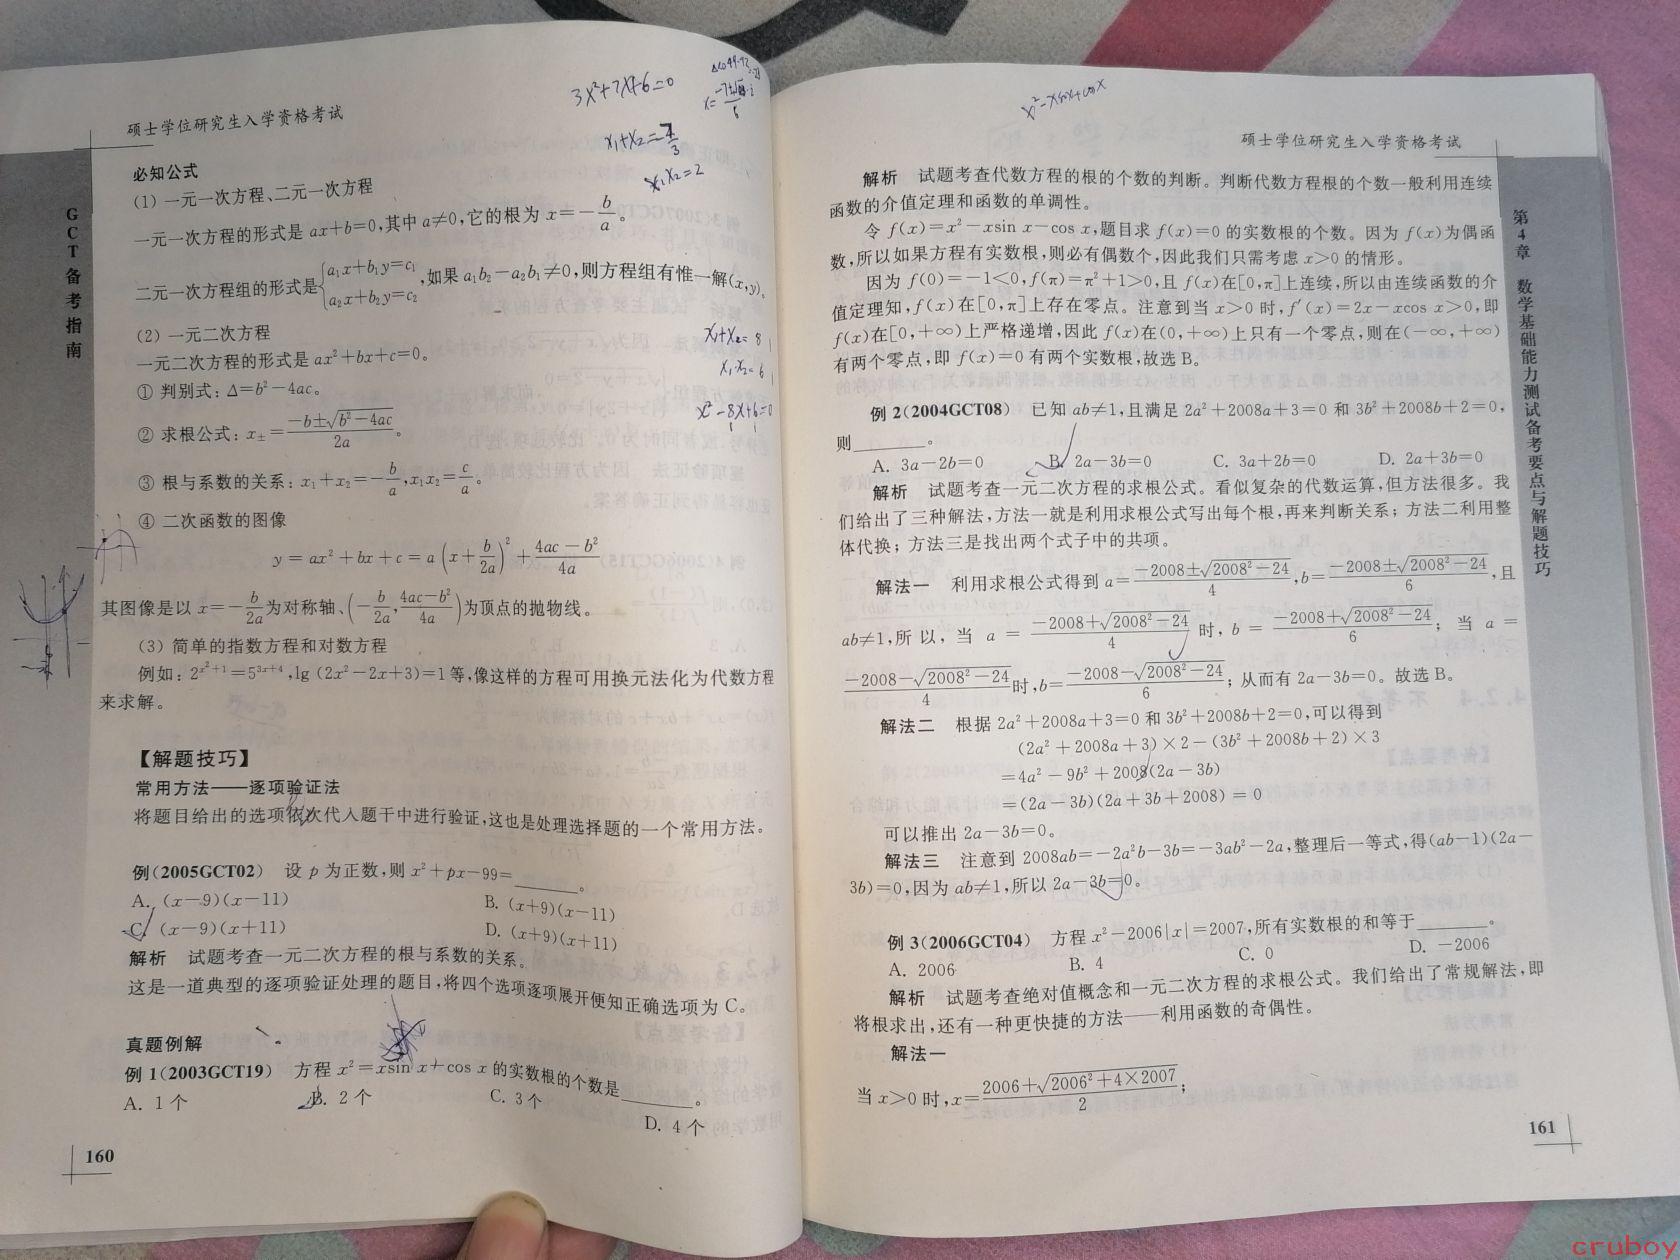 3x²+7x+6=0
x₁+x₂=7/3
x₁x₂=2
硕士学位研究生入学资格考试
GCT备考指南
必知公式
(1) 一元一次方程、二元一次方程
一元一次方程的形式是 ax+b=0,其中 a≠0,它的根为 x=-b/a。
二元一次方程组的形式是{a₁x+b₁y=c₁ a₂x+b₂y=c₂,如果 a₁b₂-a₂b₁≠0,则方程组有惟一解(x,y)。
(2) 一元二次方程
一元二次方程的形式是 ax²+bx+c=0。
① 判别式: Δ=b²-4ac。
② 求根公式: x±=(-b±√(b²-4ac))/2a。
③ 根与系数的关系: x₁+x₂=-b/a,x₁x₂=c/a。
x₁+x₂=8
x₁·x₂=6
x²-8x+6=0
④ 二次函数的图像
y=ax²+bx+c=a(x+b/2a)²+(4ac-b²)/4a
其图像是以 x=-b/2a为对称轴、(-b/2a,(4ac-b²)/4a)为顶点的抛物线。
(3) 简单的指数方程和对数方程
例如: 2^(x²+1)=5^(3x+4),lg (2x²-2x+3)=1 等,像这样的方程可用换元法化为代数方程
来求解。
【解题技巧】
常用方法——逐项验证法
将题目给出的选项依次代入题干中进行验证,这也是处理选择题的一个常用方法。
例(2005GCT02) 设 p 为正数,则 x²+px-99=______。
A. (x-9)(x-11) B. (x+9)(x-11)
C. (x-9)(x+11) D. (x+9)(x+11)
解析 试题考查一元二次方程的根与系数的关系。
这是一道典型的逐项验证处理的题目,将四个选项逐项展开便知正确选项为 C。
真题例解
例 1(2003GCT19) 方程 x²=xsin x+cos x 的实数根的个数是______。
A. 1 个 B. 2 个 C. 3 个 D. 4 个
160
x²-xsinx+cosx
硕士学位研究生入学资格考试
第4章 数学基础能力测试备考要点与解题技巧
解析 试题考查代数方程的根的个数的判断。判断代数方程根的个数一般利用连续
函数的介值定理和函数的单调性。
令 f(x)=x²-xsin x-cos x,题目求 f(x)=0 的实数根的个数。因为 f(x)为偶函
数,所以如果方程有实数根,则必有偶数个,因此我们只需考虑 x>0 的情形。
因为 f(0)=-1<0,f(π)=π²+1>0,且 f(x)在[0,π]上连续,所以由连续函数的介
值定理知,f(x)在[0,π]上存在零点。注意到当 x>0 时,f′(x)=2x-xcos x>0,即
f(x)在[0,+∞)上严格递增,因此 f(x)在(0,+∞)上只有一个零点,则在(-∞,+∞)
有两个零点,即 f(x)=0 有两个实数根,故选 B。
例 2(2004GCT08) 已知 ab≠1,且满足 2a²+2008a+3=0 和 3b²+2008b+2=0,
则______。
A. 3a-2b=0 B. 2a-3b=0 C. 3a+2b=0 D. 2a+3b=0
解析 试题考查一元二次方程的求根公式。看似复杂的代数运算,但方法很多。我
们给出了三种解法,方法一就是利用求根公式写出每个根,再来判断关系;方法二利用整
体代换;方法三是找出两个式子中的共项。
解法一 利用求根公式得到 a=(-2008±√(2008²-24))/4,b=(-2008±√(2008²-24))/6,且
ab≠1,所以,当 a=(-2008+√(2008²-24))/4 时,b=(-2008+√(2008²-24))/6;当 a=
(-2008-√(2008²-24))/4时,b=(-2008-√(2008²-24))/6;从而有 2a-3b=0。故选 B。
解法二 根据 2a²+2008a+3=0 和 3b²+2008b+2=0,可以得到
(2a²+2008a+3)×2-(3b²+2008b+2)×3
=4a²-9b²+2008(2a-3b)
=(2a-3b)(2a+3b+2008)=0
可以推出 2a-3b=0。
解法三 注意到 2008ab=-2a²b-3b=-3ab²-2a,整理后一等式,得(ab-1)(2a-
3b)=0,因为 ab≠1,所以 2a-3b=0。
例 3(2006GCT04) 方程 x²-2006|x|=2007,所有实数根的和等于______。
A. 2006 B. 4 C. 0 D. -2006
解析 试题考查绝对值概念和一元二次方程的求根公式。我们给出了常规解法,即
将根求出,还有一种更快捷的方法——利用函数的奇偶性。
解法一
当 x>0 时,x=(2006+√(2006²+4×2007))/2;
161
cruboy